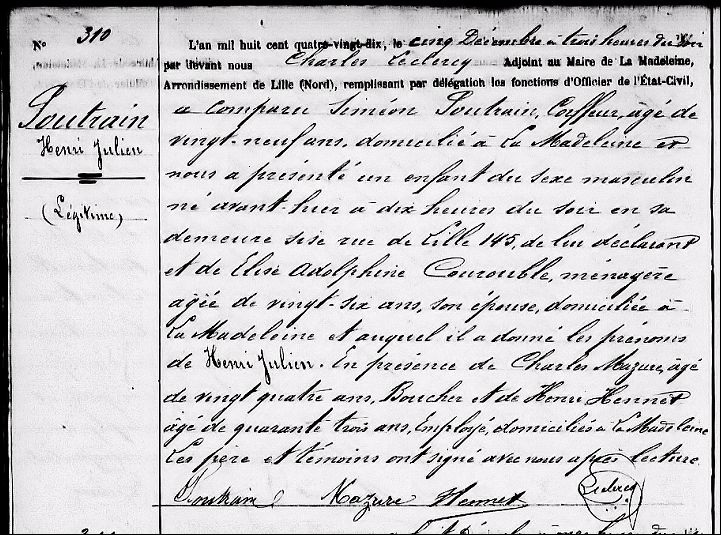 N° 310
Soutrain
Henri Julien
(Légitime)
L'an mil huit cent quatre-vingt-dix, le cinq Décembre à trois heures du soir
par devant nous Charles Leclercq Adjoint au Maire de La Madeleine,
Arrondissement de Lille (Nord), remplissant par délégation les fonctions d'Officier de l'État-Civil,
a comparu Siméon Soutrain, Coiffeur, âgé de
vingt-neuf ans, domicilié à La Madeleine et
nous a présenté un enfant du sexe masculin
né avant hier à dix heures du soir en sa
demeure sise rue de Lille 145, de lui déclarant
et de Elise Adolphine Courouble, ménagère
agée de vingt-six ans, son épouse, domiciliée à
La Madeleine et auquel il a donné les prénoms
de Henri Julien. En présence de Charles Mazure, âgé
de vingt quatre ans, Boucher et de Henri Hennet
âgé de quarante trois ans, Employé, domiciliés à La Madeleine
Les père et témoins ont signé avec nous après lecture.
Soutrain Mazure Hennet Leclercq